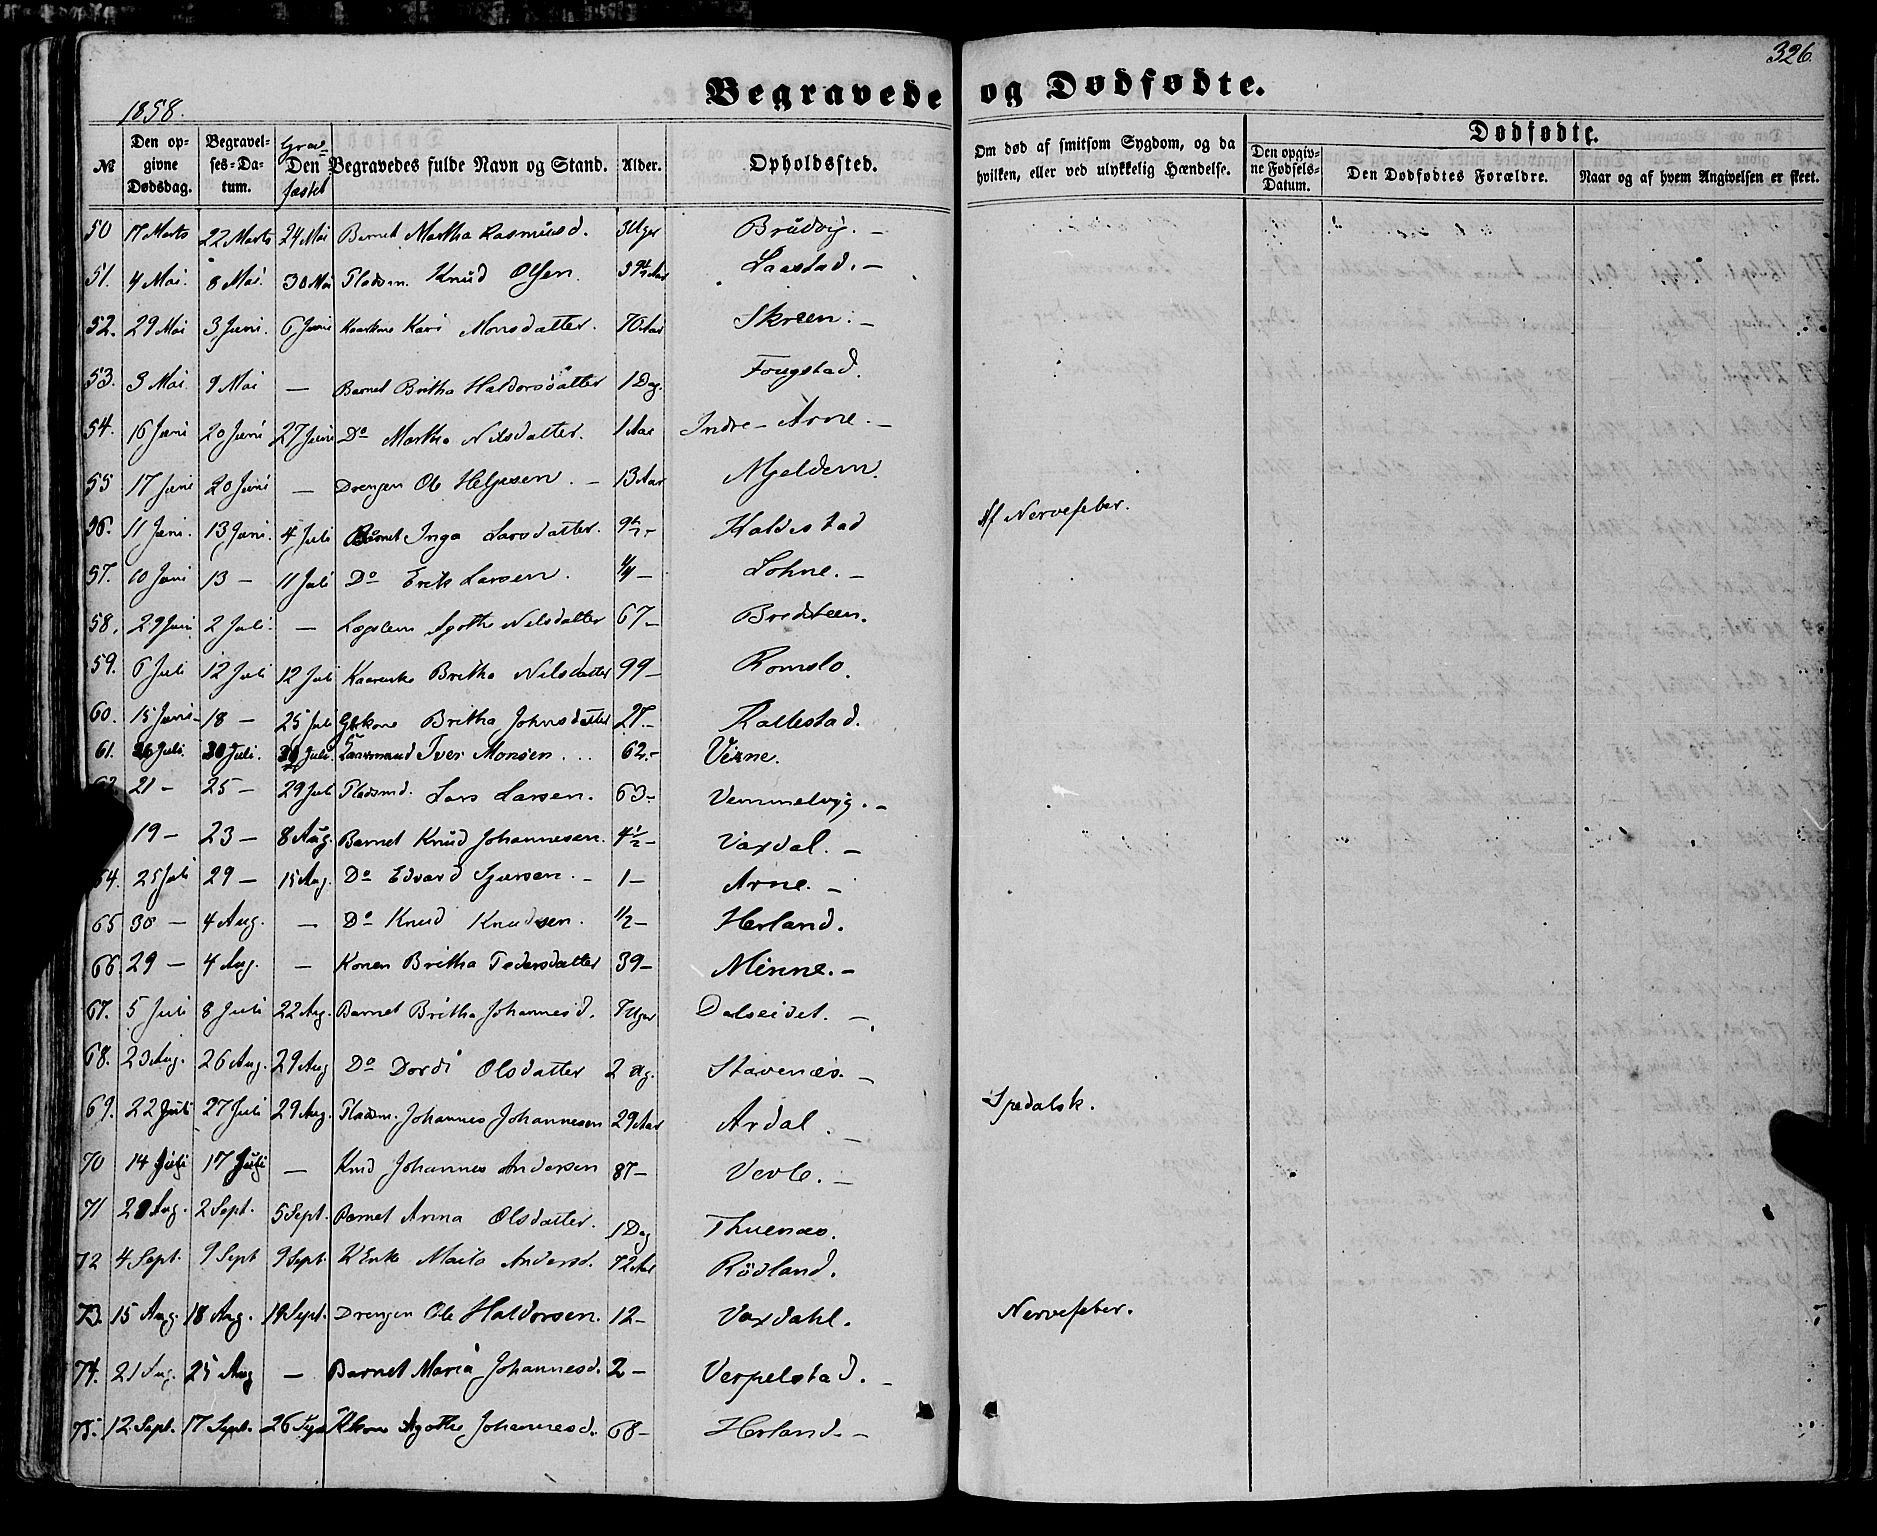 326.
Begravede og Dødfødte.
1858.
№ Den opgivne Dødsdag. Begravelses-Datum. Grav-fæstet Den Begravedes fulde Navn og Stand. Alder. Opholdssted. Om død af smitsom Sygdom, og da hvilken, eller ved ulykkelig Hændelse. Dødfødte. Den opgivne Fødsels-Datum. Den Dødfødtes Forældre. Naar og af hvem Angivelsen er skeet.
50 17 Marts 22 Marts 24 Mai Barnet Martha Rasmusd. 3 Uger Brudvig. –
51. 4 Mai. 8 Mai. 30 Mai Pladsm. Knud Olsen. Laastad. –
52. 29 Mai 3 Juni. 6 Juni Kari Monsdatter. 70 Aar Skreen. –
53. 3 Mai 9 Mai — Barnet Britha Haldorsdatter 1 Dag. Fougstad.
54. 16 Juni 20 Juni 27 Juni Do Martha Nilsdatter. 1 Aar Indre – Arne. –
55 17 Juni 20 Juni — Drengen Ole Helgesen. – 13 Aar Mjeldem. Af Nervefeber.
56. 11 Juni. 13 Juni. 4 Juli Barnet Inga Larsdatter. Haldestad
57. 10 Juni 13 – 11 Juli Do Erik Larsen. ¼ – Lohne. –
58. 29 Juni 2 Juli. — Lægslem Agathe Nilsdatter 67 – Bredsteen.
59. 6 Juli 12 Juli 12 Juli Kaarenke Britha Nilsdatter 99 – Romslo.
60. 15 Juni – 18 – 25 Juli Gbkone Britha Johnsdatter 27. – Kallestad.
61. 26 Juli. 30 Juli. 30 Juli. Kaarmand Iver Monsen... 62. – Virne.
21 – 25 – 29 Juli Pladsmd. Lars Larsen. 63 – Vemmelvig. –
19 – 23 – 8 Aug. Barnet Knud Johannesen. 4½ – Vaxdal. –
64. 25 Juli 29 – 15 Aug. Do Edvard Sjursen. – 1 – Arne. –
65 30 – 4 Aug. — Do Knud Knudsen. ½ – Herland.
66 29 – 4 Aug. — Konen Britha Pedersdatter 39 – Minne. –
67. 5 Juli 8 Juli 22 Aug. Barnet Britha Johannesd. 7 Uger Dalseidet. –
68. 23 Aug. 26 Aug. 29 Aug Do Dordi Olsdatter 2 Stavenæs. –
69. 22 Juli 27 Juli 29 Aug. Pladsm. Johannes Johannesen 29 Aar Ardal. – Spedalsk.
70 14 Juli 17 Juli — Kmd Johannes Andersen 87 – Vevle. –
71 28 Aug. 2 Sept. 5 Sept. Barnet Anna Olsdatter. 1 Dag Thuenæs.
72 4 Sept. 9 Sept 9 Sept. Enke Marta Andersd. 72 Aar Rödland.
73. 15 Aug. 18 Aug. 19 Sept. Drengen Ole Haldorsen. 12 – Vaxdahl. Nervefeber.
74. 21 Aug. 25 Aug — Barnet Maria Johannesd. 2 – Verpelstad. –
75. 12 Sept. 17 Sept. 26 Sept Kkone Agathe Johannesd. 68 – Herland. –